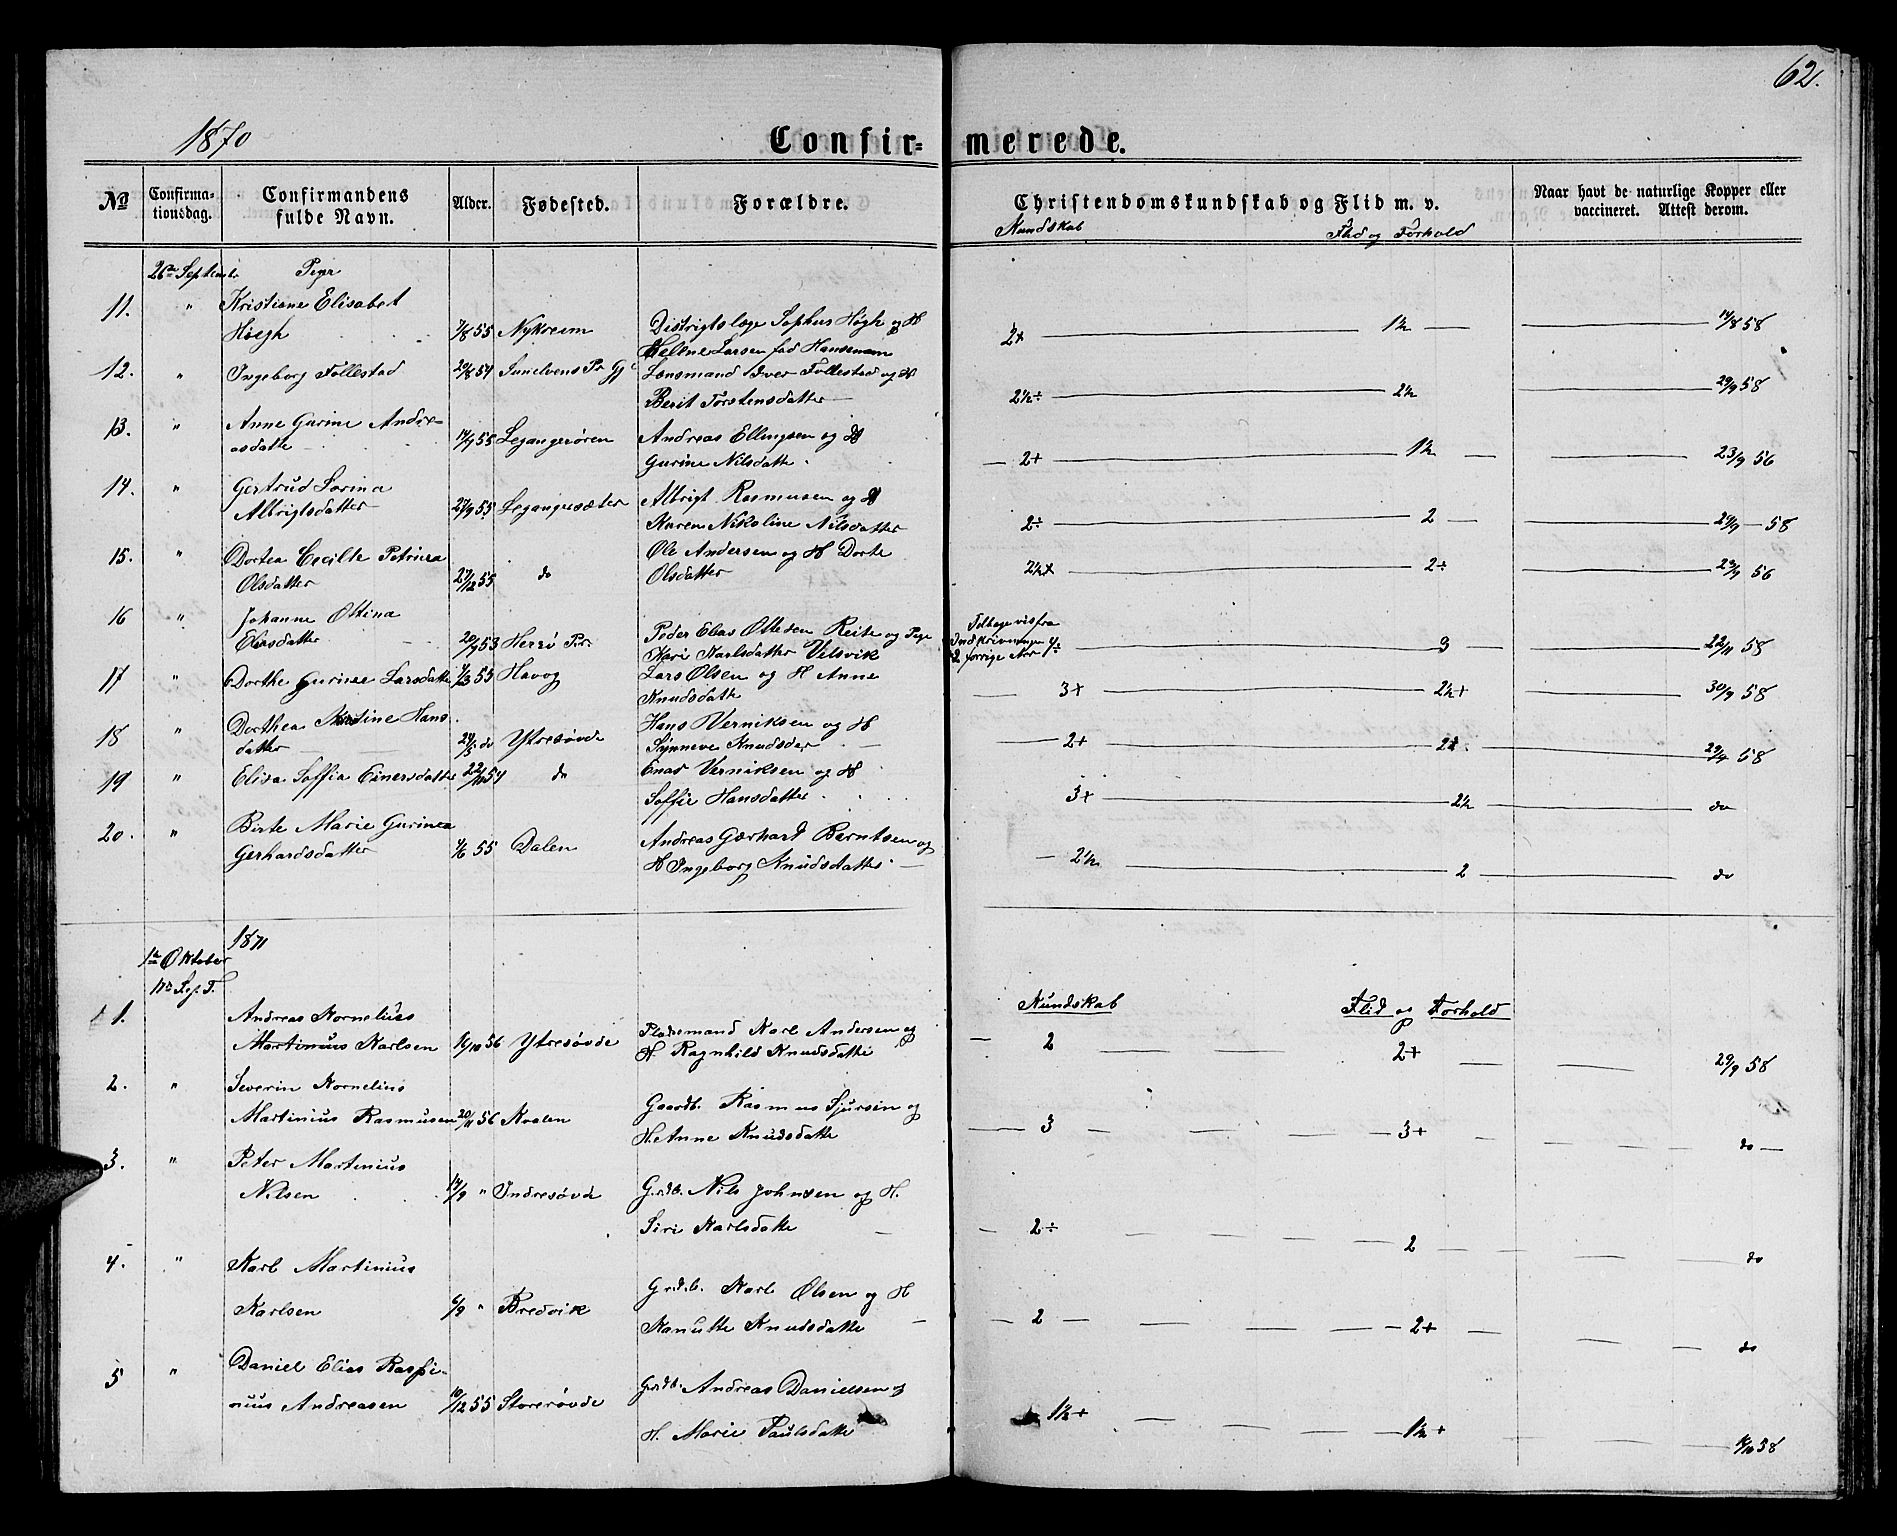 62.
1870
Confir-
merede.
No
Confirma-
tionsdag.
Confirmandens
fulde Navn.
Alder.
Fødested.
Forældre.
Christendomskundskab og Flid m. v.
Kundskab
Flid og Forhold
Naar havt de naturlige Kopper eller
vaccineret. Attest derom.
26de September
Piger
11. " Kristiane Elisabet
Høegh 7/8 55 Nykreim Distrigtslæge Sophus Høgh og H 2+ 1½ 14/8 58
Hellene Larsen fød Hansen
12. " Ingeborg Follestad 20/8 54 Sunelvens Pr Gj Lensmand Iver Follestad og H
Berit Torstensdatter 2½÷ 2½ 29/9 58
13. " Anne Gurine Andre-
asdatte 14/9 55 Legangerøren Andreas Ellingsen og H
Gurine Nilsdatte 2+ 1½ 23/9 56
14. " Gertrud Sorina
Albrigtsdatter 27/9 55 Legangersæter Albrigt Rasmusen og H
Karen Nikoline Nilsdatter 2÷ 2 29/9 58
15. " Dortea Cecilie Petrinea
Olsdatter 27/12 55 do Ole Andersen og H Dorte
Olsdatter 2½+ 2÷ 23/9 56
16 " Johanne Ottina
Eliasdatter 20/9 53 Herrø Pr. Peder Elias Ottesen Reite og Pige
Kari Karlsdatter Velsvik
Tilbagevis fra
Indskrivningen
2 forrige Aar 4÷ 3 22/11 58
17 " Dorthe Gurinee Larsdatte 4/3 55 Havog Lars Olsen og H Anne
Knudsdatte 3+ 2½+ 30/9 58
18 " Dorthea Hans
datter 24/5 do Ytresøvde Hans Verniksen og H
Synneve Knudsder 2+ 29/9 58
19 " Elisa Soffia Einersdatter 22/10 54 do Enar Verniksen og H
Soffie Hansdatter 3+ 2½ do
20. " Birte Marie Gurinea
Gerhardsdatter 4/6 55 Dalen Andreas Gærhard Berntsen og
H Ingeborg Knudsdatter 2½ 2 do
1871
1te Oktober
17de S. p. T.
Kundskab
Flid og Forhold
1. Andreas Kornelius
Martinius Karlsen 16/10 56 Ytresøvde Pladsemand Karl Andersen og
H. Ragnhild Knudsdatte 2 2+ 29/9 58
2. " Severin Kornelius
Martinius Rasmusen 20/11 56 Kvalen Gaardb. Rasmus Sjursen og
H. Anne Knudsdatte 3 3+ do
3. " Peter Martinius
Nilsen 14/9 " Indresøvde Grdb. Nils Johnsen og H.
Siri Karlsdatte 2÷ 2 do
4. " Karl Martinius
Karlsen 6/9 " Bredvik Grdb. Karl Olsen og H
Kanutte Knudsdatte 2 2+ do
5 " Daniel Elias Rasfi-
nus Andreasen 10/12 55 Storesøvde Grdb. Andreas Danielsen og
H. Marie Paulsdatte 1½+ 1½+ 16/10 58